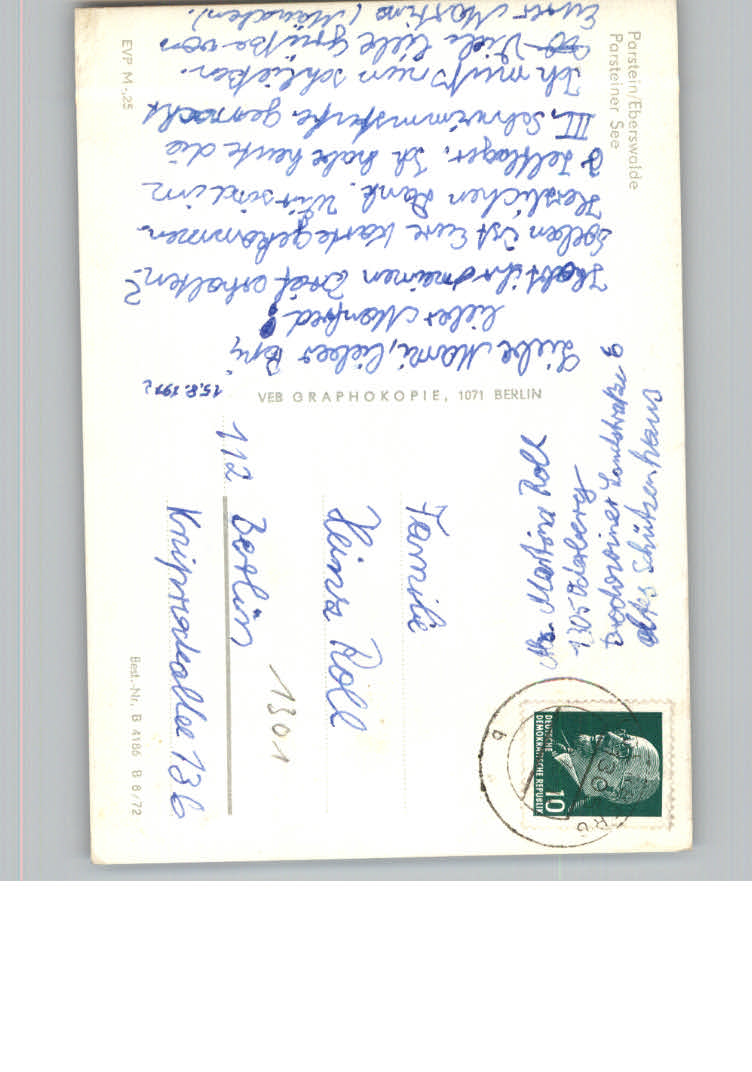 Parstein/Eberswalde
Parsteiner See
15.8.1972
Liebe Mami, lieber Papi,
lieber Manfred!
Habt ihr meinen Brief erhalten?
Soeben ist Eure Karte gekommen.
Herzlichen Dank. Wir sind im
Zeltlager. Ich habe heute die
III. Schwimmstufe gemacht
Ich muß nun schließen.
Viele liebe Grüße von
Eurer Martina (Mäuschen).
EVP M -,25
VEB GRAPHOKOPIE, 1071 BERLIN
Abs. Martina Roll
1305 Oderberg
Brodowiner Landstraße 6
altes Schützenhaus
DEUTSCHE
DEMOKRATISCHE REPUBLIK
10
b
Familie
Heinz Roll
1301
112 Berlin
Kniprodeallee 136
Best.-Nr. B 4186 B 8/72